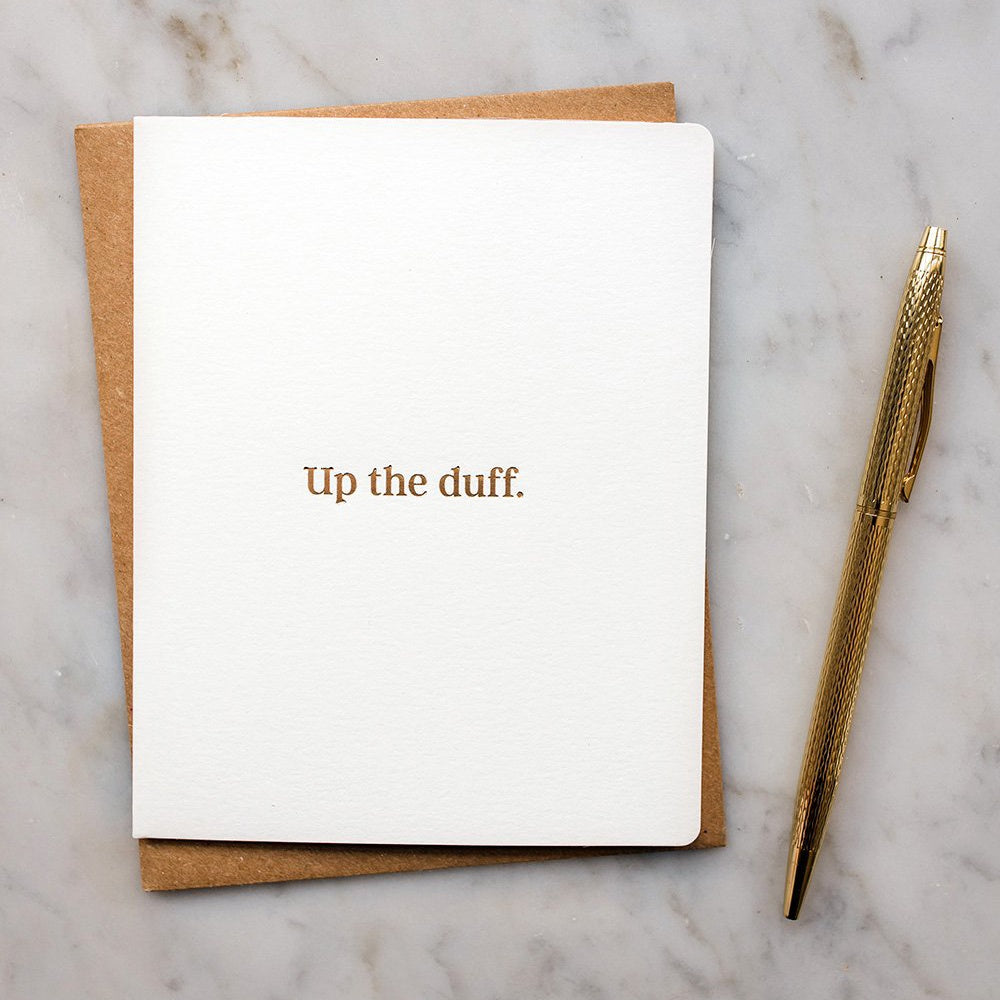 Up the duff.